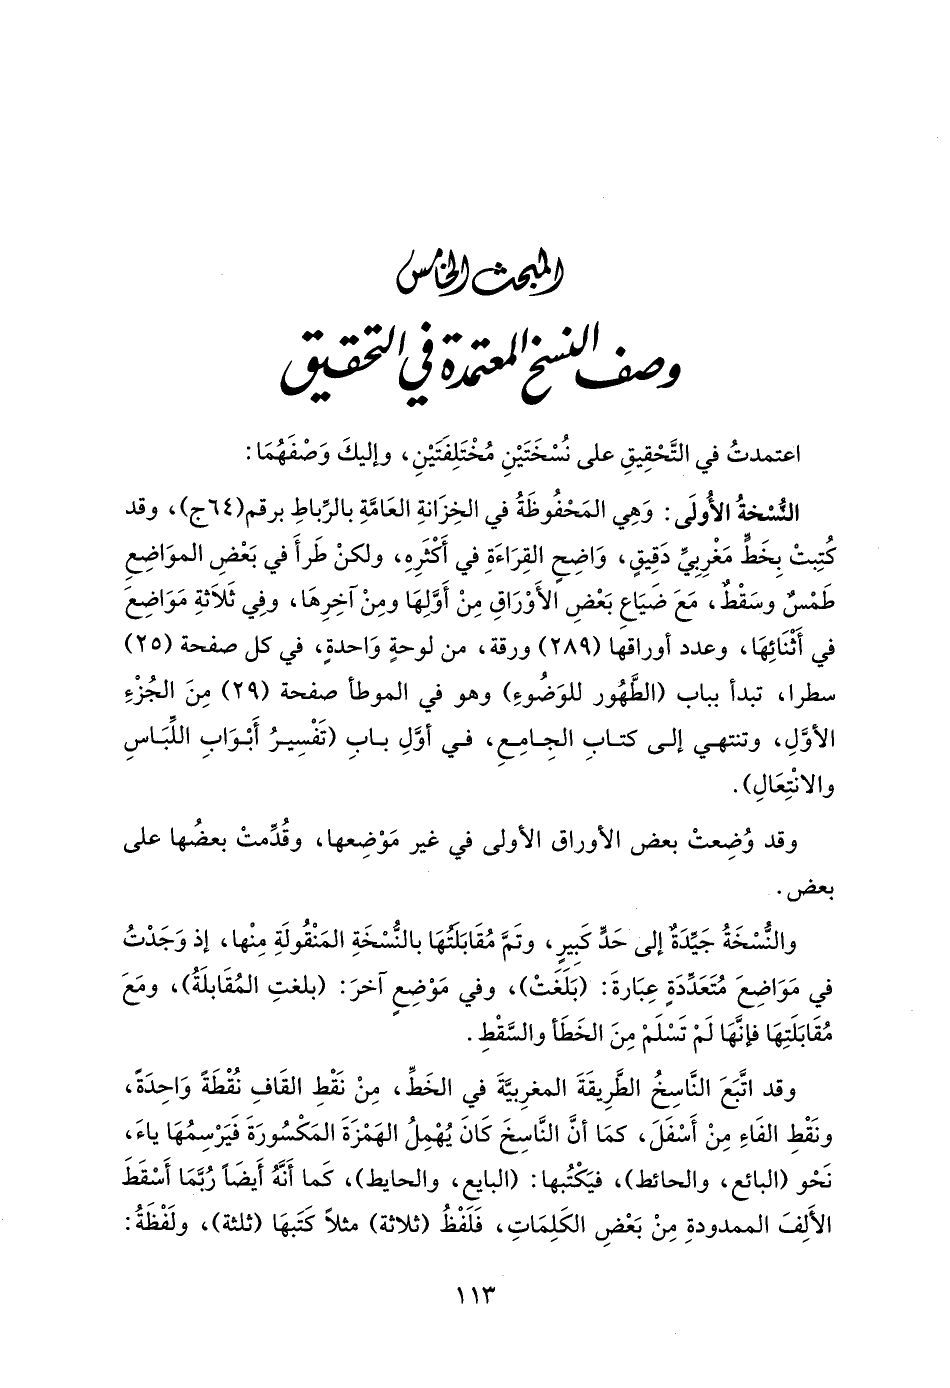 المبحث الخامس
وصف النسخ المعتمدة في التحقيق
اعتمدتُ في التَّحْقِيقِ على نُسْخَتَيْنِ مُخْتَلِفَتَيْنِ، وإليكَ وَصْفَهُمَا:
النُّسْخةُ الأُولَى: وَهِي المَحْفُوظَةُ في الخِزَانَةِ العَامَّةِ بالرِّباطِ برقم(٦٤ج)، وقد
كُتِبتْ بِخَطٍّ مَغْرِبِيٍّ دَقِيقٍ، وَاضِحِ القِرَاءَةِ في أَكْثَرِهِ، ولكنْ طَرأَ في بَعْضِ المواضِعِ
طَمْسٌ وسَقْطٌ، مَعَ ضَيَاعِ بَعْضِ الأَوْرَاقِ مِنْ أَوَّلِهَا ومِنْ آخِرِهَا، وفِي ثَلاَثةِ مَوَاضِعَ
في أَثْنَائِهَا، وعدد أوراقها (٢٨٩) ورقة، من لوحةٍ وَاحدةٍ، في كل صفحة (٢٥)
سطرا، تبدأ بباب (الطَّهُور للوَضُوءِ) وهو في الموطأ صفحة (٢٩) مِنَ الجُزْءِ
الأوَّلِ، وتنتهي إلى كتابِ الجامِعِ، في أوَّلِ بابِ (تَفْسِيرُ أَبْوَابِ اللِّبَاسِ
والانْتِعَالِ).
وقد وُضِعتْ بعض الأوراق الأولى في غير مَوْضِعها، وقُدِّمتْ بعضُها على
بعض.
والنُّسْخَةُ جَيِّدَةٌ إلى حَدٍّ كَبِيرٍ، وتَمَّ مُقَابَلَتُهَا بالنُّسْخَةِ المَنْقُولَةِ مِنْها، إذ وَجَدْتُ
في مَوَاضِعَ مُتَعَدِّدَةٍ عِبَارةَ: (بَلَغَتْ)، وفي مَوْضِعٍ آخرَ: (بلغتِ المُقَابلَةُ)، ومَعَ
مُقَابَلَتِهَا فإنَّهَا لَمْ تَسْلَمْ مِنَ الخَطَأ والسَّقْطِ.
وقد اتَّبَعَ النَّاسِخُ الطَّرِيقَةَ المغربيَّةَ في الخَطِّ، مِنْ نَقْطِ القَافِ نُقْطَةً وَاحِدَةً،
ونَقْطِ الفَاءِ مِنْ أَسْفَلَ، كمَا أنَّ النَّاسِخَ كَانَ يُهْمِلُ الهَمْزَةَ المَكْسُورَةَ فَيَرْسِمُهَا ياءَ،
نَحْو (البائع، والحائط)، فيَكْتُبها: (البايع، والحايط)، كَما أَنَّهُ أيضَاً رُبَّمَا أَسْقَطَ
الأَلِفَ الممدودةِ مِنْ بَعْضِ الكَلِمَاتِ، فَلَفْظُ (ثلاثة) مثلاً كَتَبَهَا (ثلثة)، ولَفْظَةُ:
١١٣